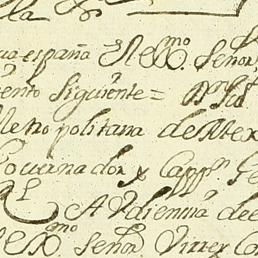 la
españa = Ex.mo Señor
ento Siguiente =
Metropolitana de Mex
Governador y Capp.n Ge
l Audiencia de
el Ex.mo Señor Virrey Co